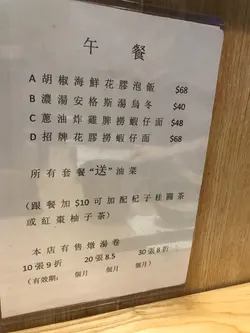 午餐
A 胡椒海鮮花膠泡飯 $68
B 濃湯安格斯湯烏冬 $40
C 蔥油炸雞脾撈蝦仔面 $48
D 招牌花膠撈蝦仔面 $68
所有套餐“送”油菜
(跟餐加 $10 可加配杞子桂圓茶
或紅棗柚子茶)
本店有售燉湯卷
10 張 9 折 20 張 8.5 30 張 8 折
(有效期: 個月 個月 個月)